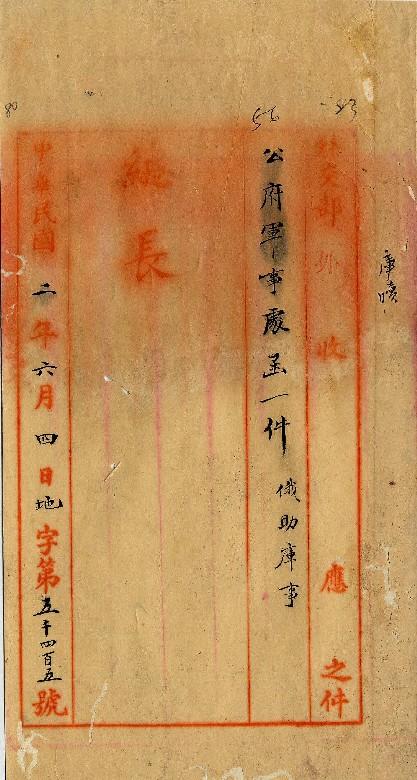 庫
外交部 收 應 之件
公府軍事處函一件 俄助庫事
總長
中華民國二年六月四日地字第五千四百五號